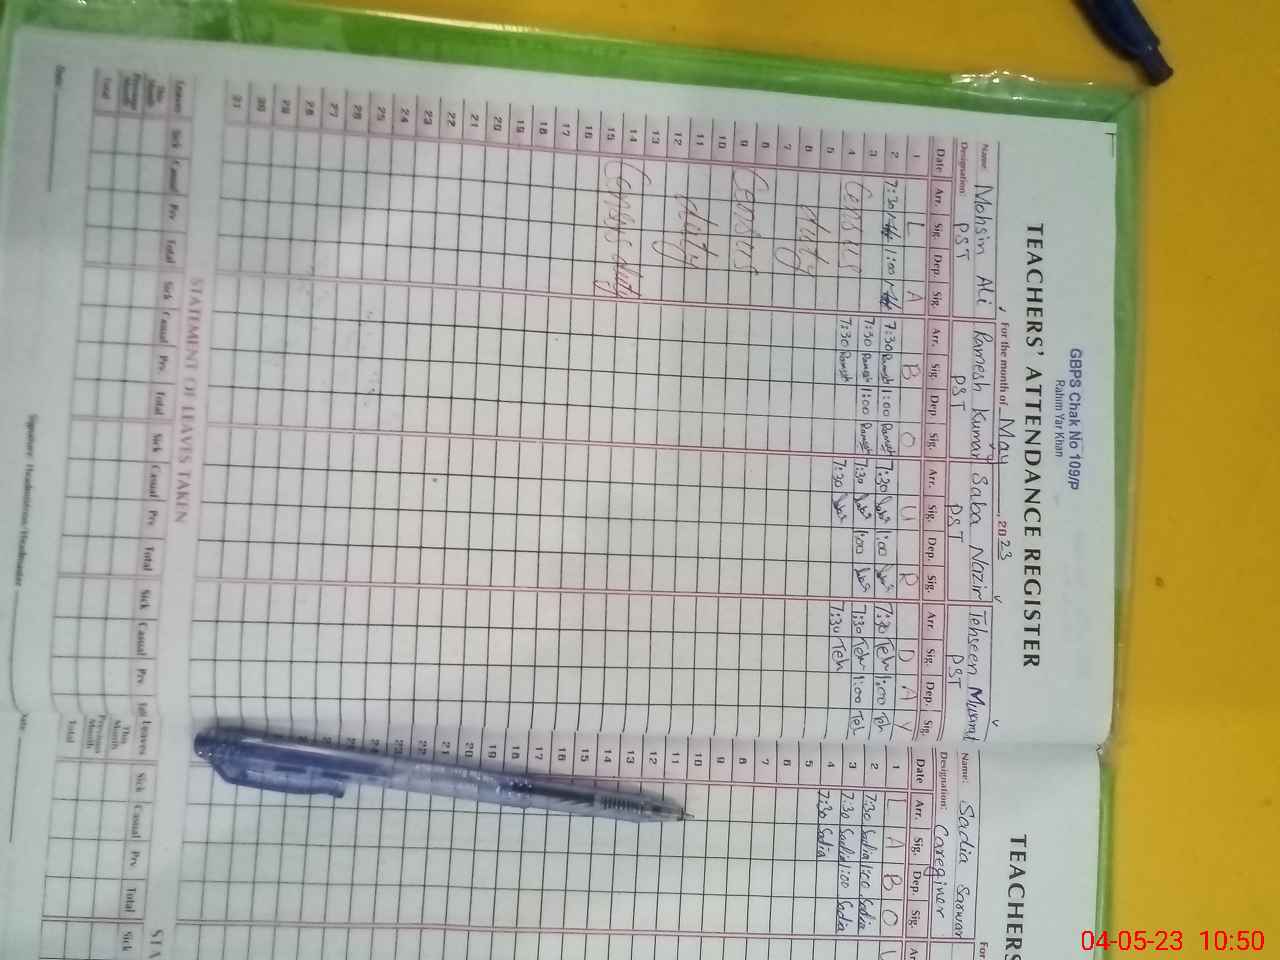 GBPS Chak No 109/P
Rahim Yar Khan
TEACHERS' ATTENDANCE REGISTER
For the month of May, 2023
Name: Mohsin Ali Ramesh Kumar Saba Nazir Tehseen
Designation: PST PST PST PST
Date Arr. Sig. Dep. Sig. Arr. Sig. Dep. Sig. Arr. Sig. Dep. Sig. Arr. Sig. Dep. Sig.
1 L A B O U R D A Y
2 7:30 1:00 7:30 Ramesh 1:00 Ramesh 7:30 1:00 7:30 Teh 1:00 Teh
3 7:30 Ramesh 1:00 Ramesh 7:30 1:00 7:30 Teh 1:00 Teh
4 Census 7:30 Ramesh 7:30 7:30 Teh
5
6 duty
7
8
9 Census
10
11
12 duty
13
14
15 Census duty
16
17
18
19
20
21
22
23
24
25
26
27
28
29
30
31
STATEMENT OF LEAVES TAKEN
Leaves Sick Casual Prv. Total Sick Casual Prv. Total Sick Casual Prv. Total Sick Casual Prv.
This Month
Previous Month
Total
Date:
Signature: Headmistress/Headmaster
TEACHERS
For
Name: Sadia Sarwar
Designation: Caregiver
Date Arr. Sig. Dep. Sig.
1 L A B O
2 7:30 Sadia 1:00 Sadia
3 7:30 Sadia 1:00 Sadia
4 7:30 Sadia
5
6
7
8
9
10
11
12
13
14
15
16
17
18
19
20
21
22
STA
Leaves Sick Casual Prv. Total Sick
This Month
Previous Month
Total
Date:
04-05-23 10:50